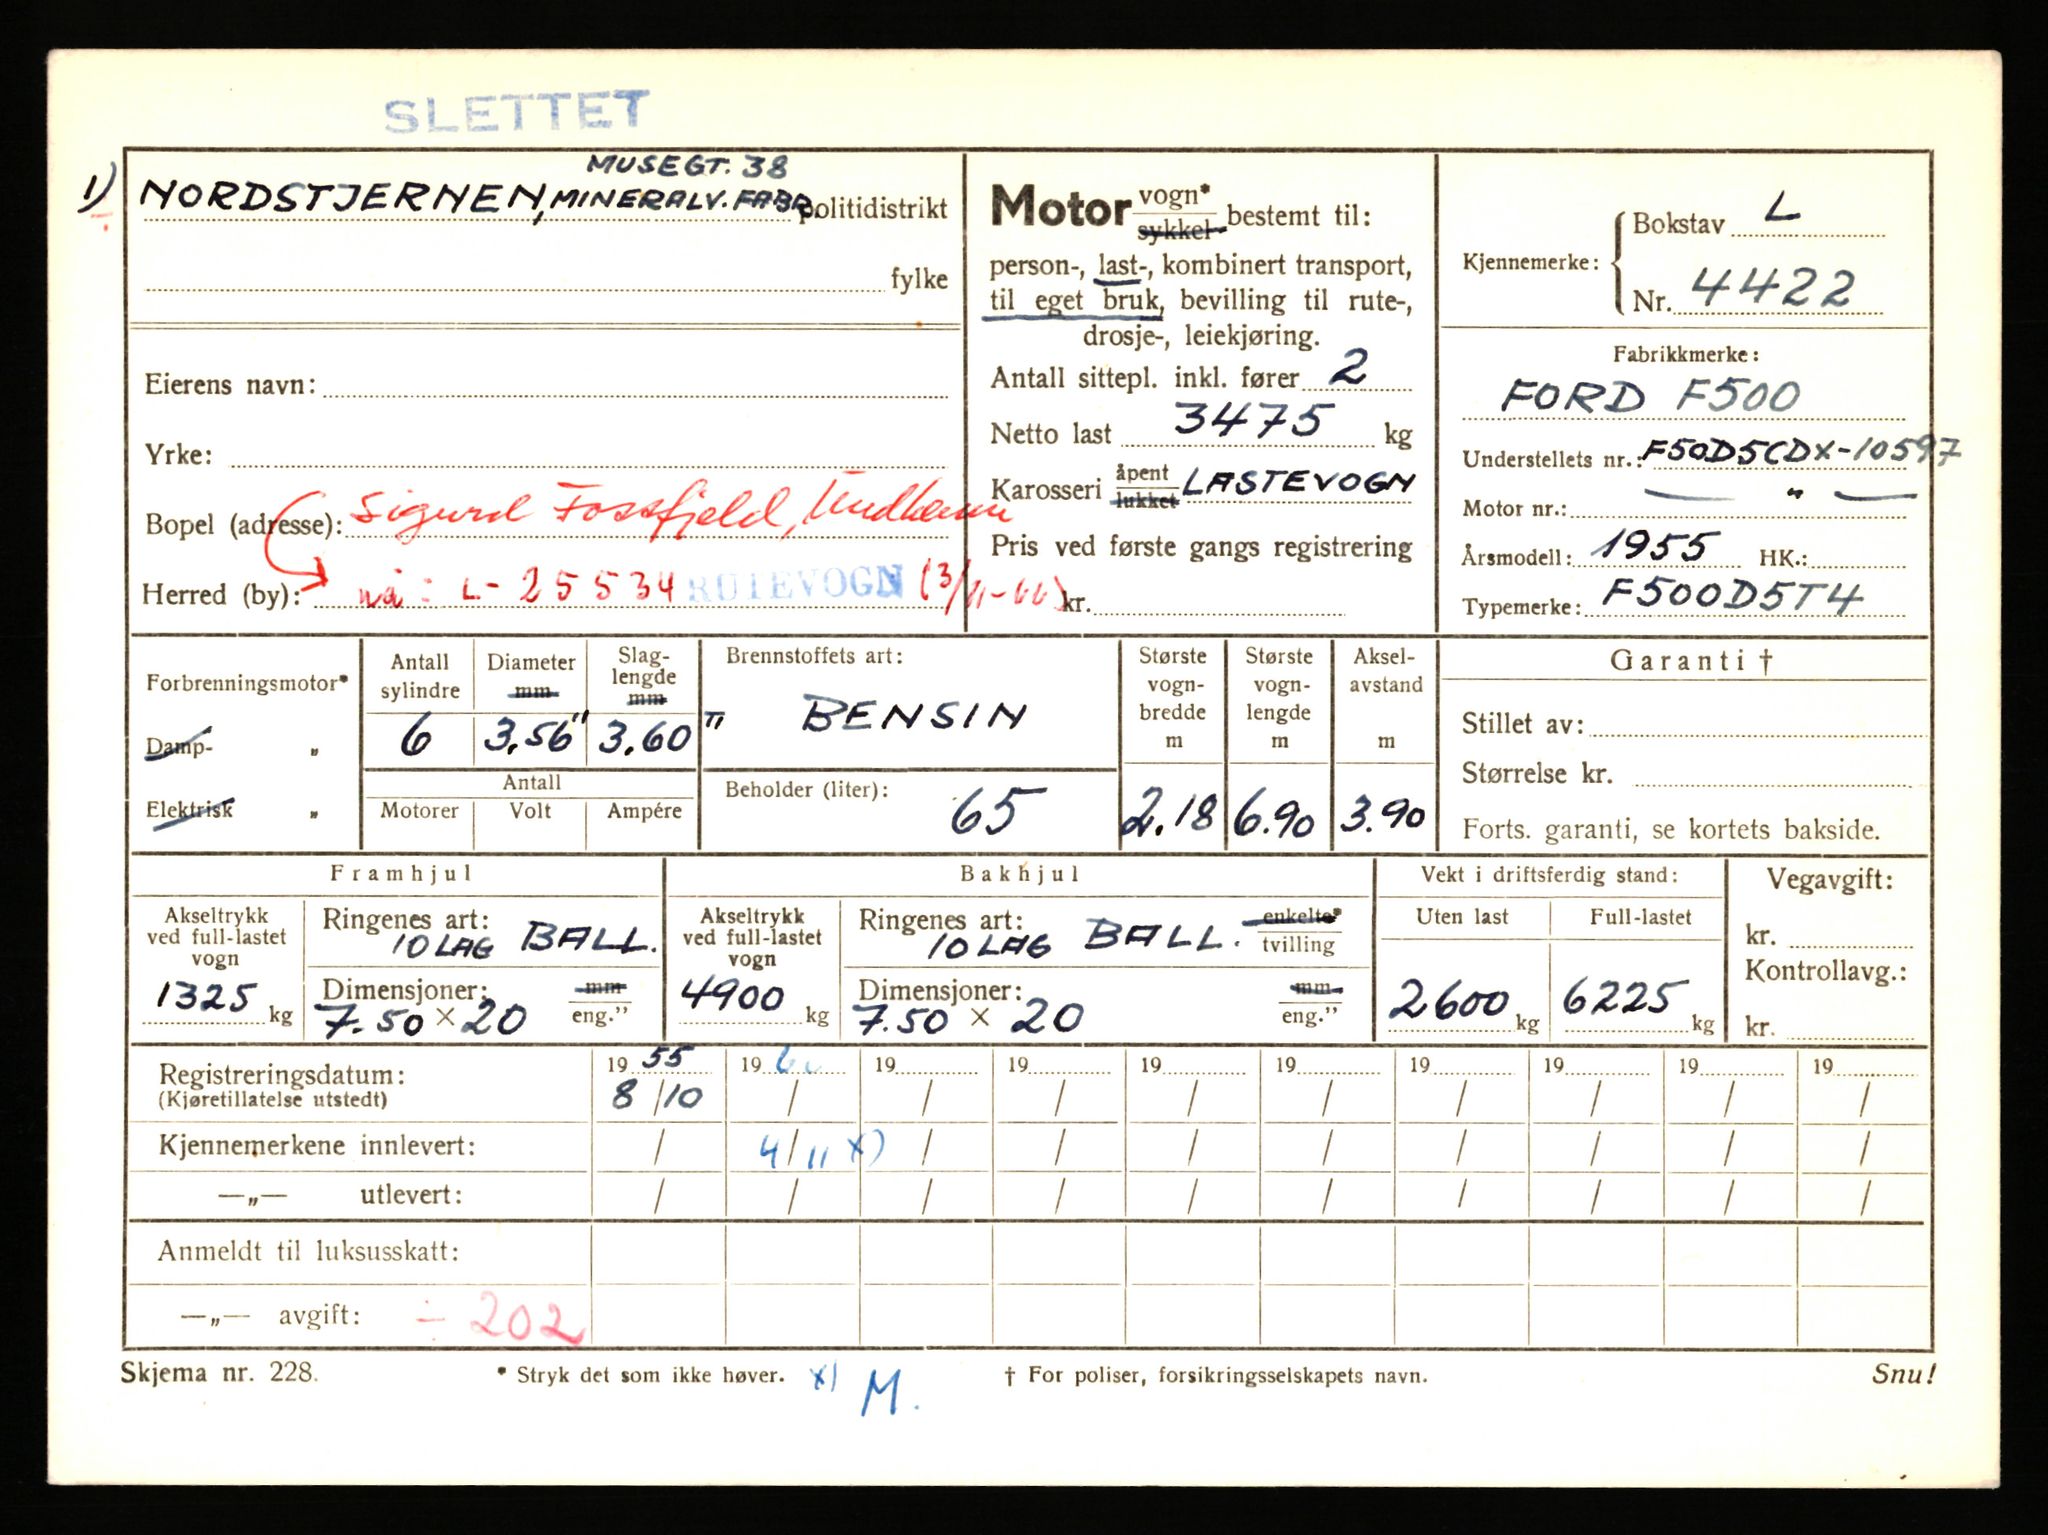 SLETTET
MUSEGT. 38
1) NORDSTJERNEN, MINERALV. FABR. politidistrikt
fylke
Eierens navn:
Yrke:
Bopel (adresse): Sigurd Fossfjeld, Undheim
Herred (by): nå: L-25534 RUTEVOGN (3/11-66)
Motor vogn* sykkel bestemt til:
person-, last-, kombinert transport,
til eget bruk, bevilling til rute-,
drosje-, leiekjøring.
Antall sittepl. inkl. fører 2
Netto last 3475 kg
Karosseri åpent lukket LASTEVOGN
Pris ved første gangs registrering
kr.
Kjennemerke: Bokstav L
Nr. 4422
Fabrikkmerke:
FORD F500
Understellets nr.: F50D5CDX-10597
Motor nr.: — " —
Årsmodell: 1955 HK.:
Typemerke: F500D5T4
Forbrenningsmotor*
Damp- "
Elektrisk "
Antall sylindre
6
Diameter mm
3.56"
Slag-lengde mm
3.60"
Antall
Motorer Volt Ampére
Brennstoffets art:
BENSIN
Beholder (liter): 65
Største vogn-bredde m
2.18
Største vogn-lengde m
6.90
Aksel-avstand m
3.90
Garanti †
Stillet av:
Størrelse kr.
Forts. garanti, se kortets bakside.
Framhjul
Akseltrykk ved full-lastet vogn
1325 kg
Ringenes art:
10 LAG BALL.
Dimensjoner: mm
7.50 × 20 eng."
Bakhjul
Akseltrykk ved full-lastet vogn
4900 kg
Ringenes art: enkelte*
10 LAG BALL. tvilling
Dimensjoner: mm
7.50 × 20 eng."
Vekt i driftsferdig stand:
Uten last Full-lastet
2600 kg 6225 kg
Vegavgift:
kr.
Kontrollavg.:
kr.
19 55 19 19 19 19 19 19 19 19 19
Registreringsdatum:
(Kjøretillatelse utstedt) 8/10 / / / / / / / / /
Kjennemerkene innlevert: / 4/11 x) / / / / / / / /
—„— utlevert: / / / / / / / / / /
Anmeldt til luksusskatt:
—„— avgift: ÷ 202
Skjema nr. 228. * Stryk det som ikke høver. x) M. † For poliser, forsikringsselskapets navn. Snu!